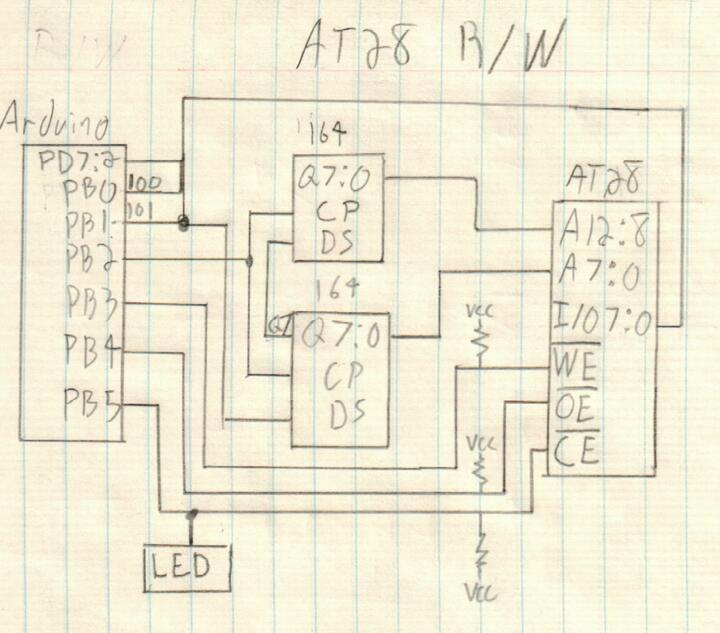 AT28 R/W
Arduino
PD7:2
PB0
100
PB1
101
PB2
PB3
PB4
PB5
164
Q7:0
CP
DS
164
Q7
Q7:0
CP
DS
AT28
A12:8
A7:0
I/O7:0
WE
OE
CE
VCC
VCC
VCC
LED